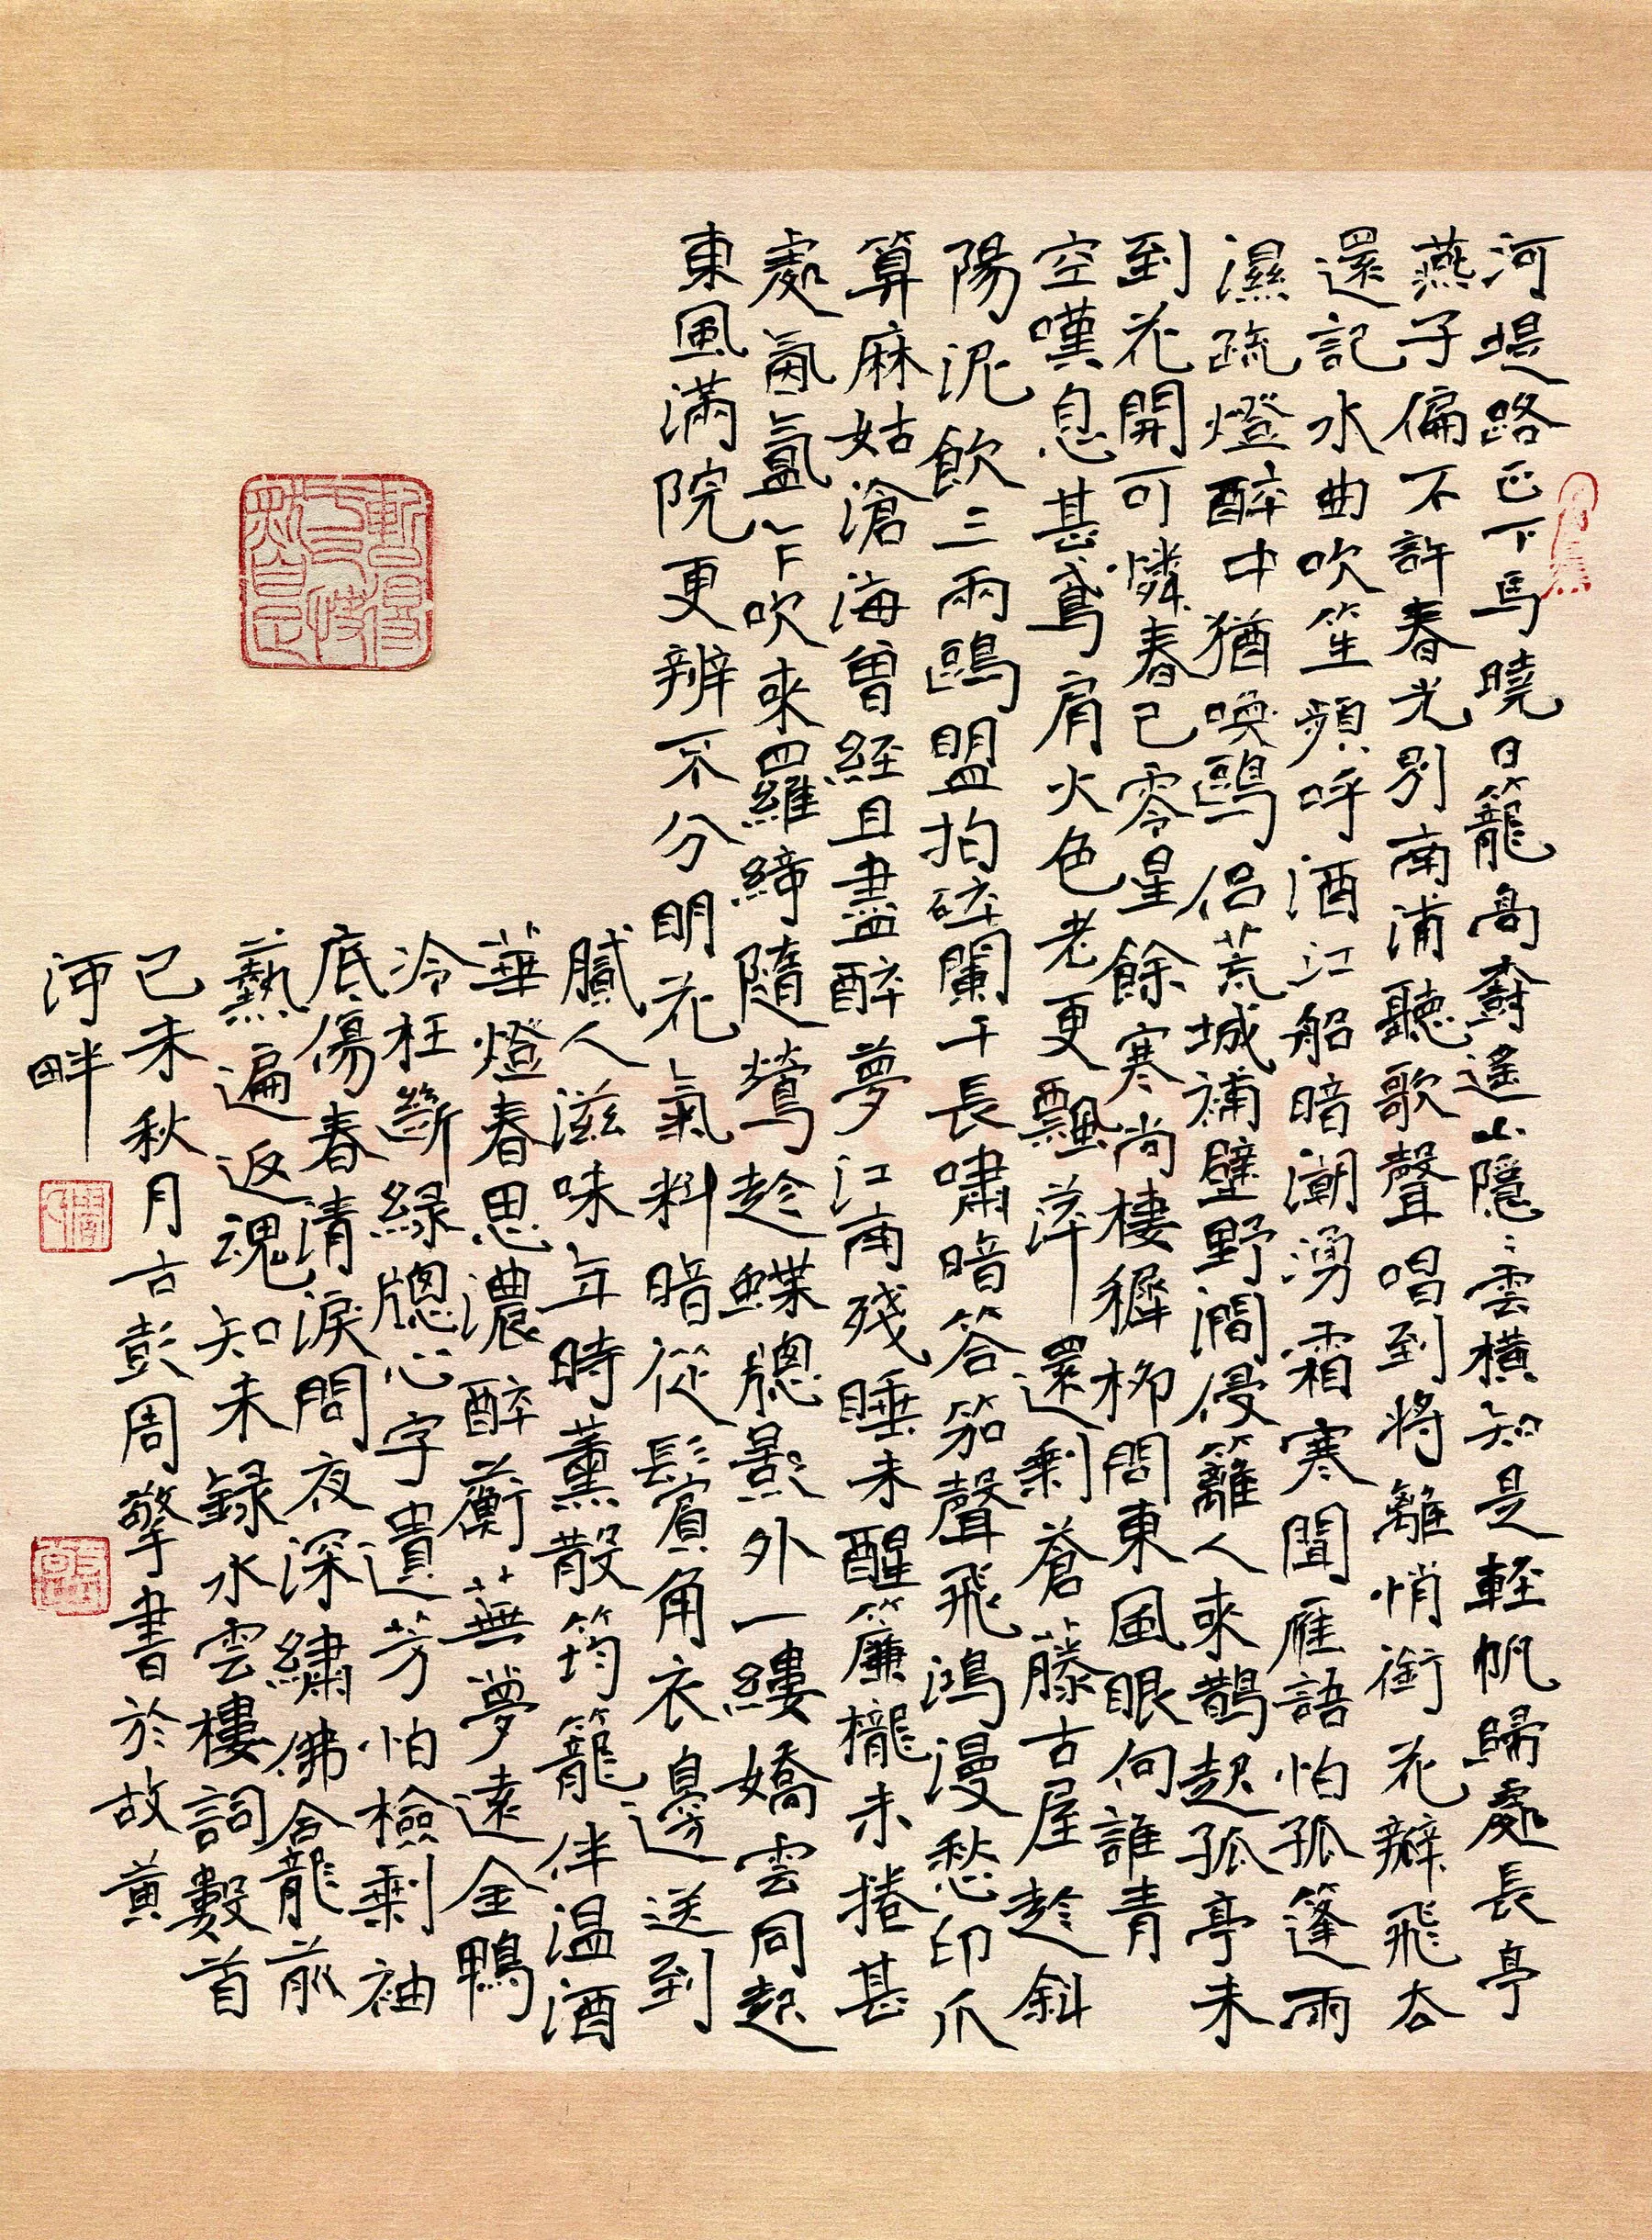 河堤路正下馬曉日籠高齋遙山隱〻雲橫知是輕帆歸處長亭
燕子偏不許春光別南浦聽歌聲唱到將離悄銜花瓣飛去
還記水曲吹笙頻呼酒江船暗潮湧霜寒聞雁語怕孤篷雨
濕疏燈醉中猶喚鷗侶荒城補壁野澗侵籬人來鵲起孤亭未
到花開可憐春已零星餘寒尚棲穉柳問東風眼向誰青
空嘆息甚鳶肩火色老更飄萍 還剩蒼藤古屋趁斜
陽泥飲三兩鷗盟拍碎闌干長嘯暗答笳聲飛鴻漫愁印爪
算麻姑滄海曾經且盡醉夢江南殘睡未醒簾櫳未捲甚
處氤氳乍吹來羅締隨鶯趁蝶牕影外一縷嬌雲同起
東風滿院更辨不分明花氣料暗從鬢角衣邊送到
膩人滋味年時薰散筠籠伴温酒
華燈春思濃醉蘅蕪夢遠金鴨
冷枉斷緑牕心字遺芳怕檢剩袖
底傷春清淚問夜深繡佛龕前
爇遍返魂知未録水雲樓詞數首
己未秋月古彭周擎書於故黄
河畔